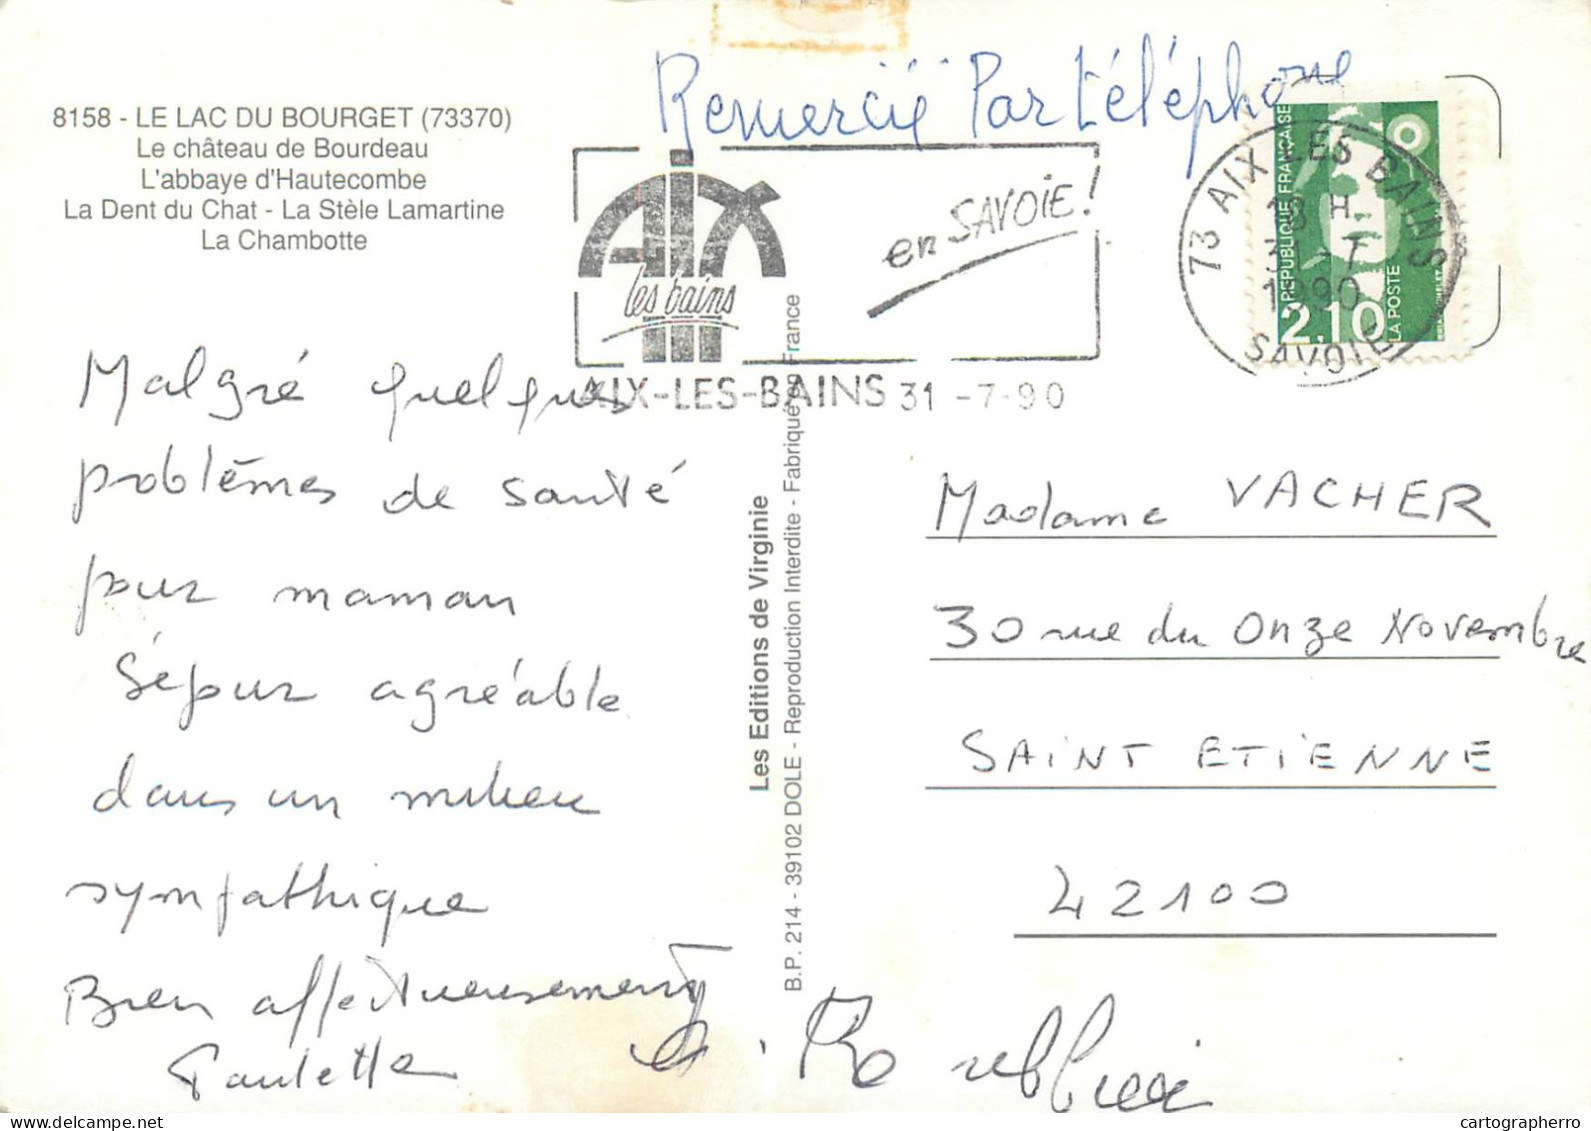 Remercié Par téléphone
8158 - LE LAC DU BOURGET (73370)
Le château de Bourdeau
L'abbaye d'Hautecombe
La Dent du Chat - La Stèle Lamartine
La Chambotte
AIX
les bains
en SAVOIE !
AIX-LES-BAINS 31 -7-90
73 AIX LES BAINS
SAVOIE
18 H
1990
REPUBLIQUE FRANÇAISE
2,10
LA POSTE
Malgré quelques
problèmes de santé
pour maman
Séjour agréable
dans un milieu
sympathique
Bien affectueusement
Paulette
Les Editions de Virginie
B.P. 214 - 39102 DOLE - Reproduction Interdite - Fabriqué en France
Madame VACHER
30 rue du Onze Novembre
SAINT ETIENNE
42100
cartes-postales-delcampe.net
cartographerro